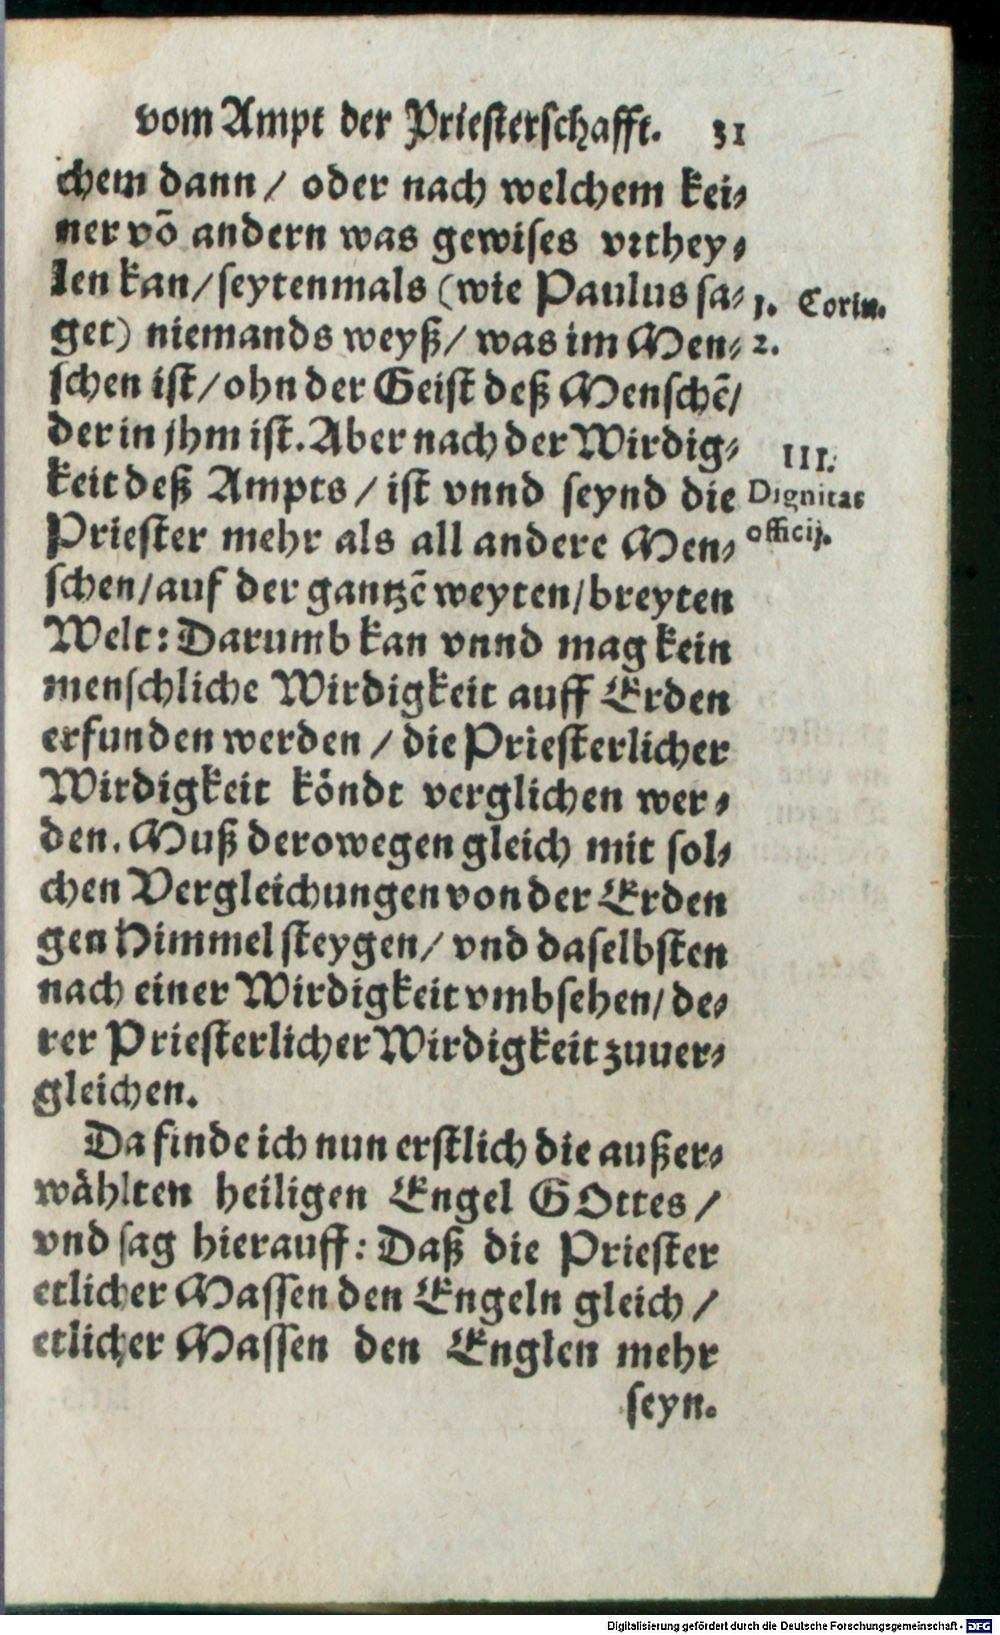 vom Ampt der Priesterschafft. 31
chem dann / oder nach welchem kei⸗
ner võ andern was gewises vrthey⸗
len kan / seytenmals (wie Paulus sa⸗
get) niemands weyß / was im Men⸗
schen ist / ohn der Geist deß Menschẽ /
der in jhm ist. Aber nach der Wirdig⸗
keit deß Ampts / ist vnnd seynd die
Priester mehr als all andere Men⸗
schen / auf der gantzẽ weyten / breyten
Welt: Darumb kan vnnd mag kein
menschliche Wirdigkeit auff Erden
erfunden werden / die Priesterlicher
Wirdigkeit köndt verglichen wer⸗
den. Muß derowegen gleich mit sol⸗
chen Vergleichungen von der Erden
gen Himmel steygen / vnd daselbsten
nach einer Wirdigkeit vmbsehen / de⸗
rer Priesterlicher Wirdigkeit zuuer⸗
gleichen.
Da finde ich nun erstlich die außer⸗
wählten heiligen Engel GOttes /
vnd sag hierauff: Daß die Priester
etlicher Massen den Engeln gleich /
etlicher Massen den Englen mehr
seyn.
1. Corin.
2.
III.
Dignitas
officij.
Digitalisierung gefördert durch die Deutsche Forschungsgemeinschaft - DFG